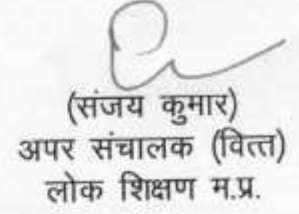 (संजय कुमार)
अपर संचालक (वित्त)
लोक शिक्षण म.प्र.